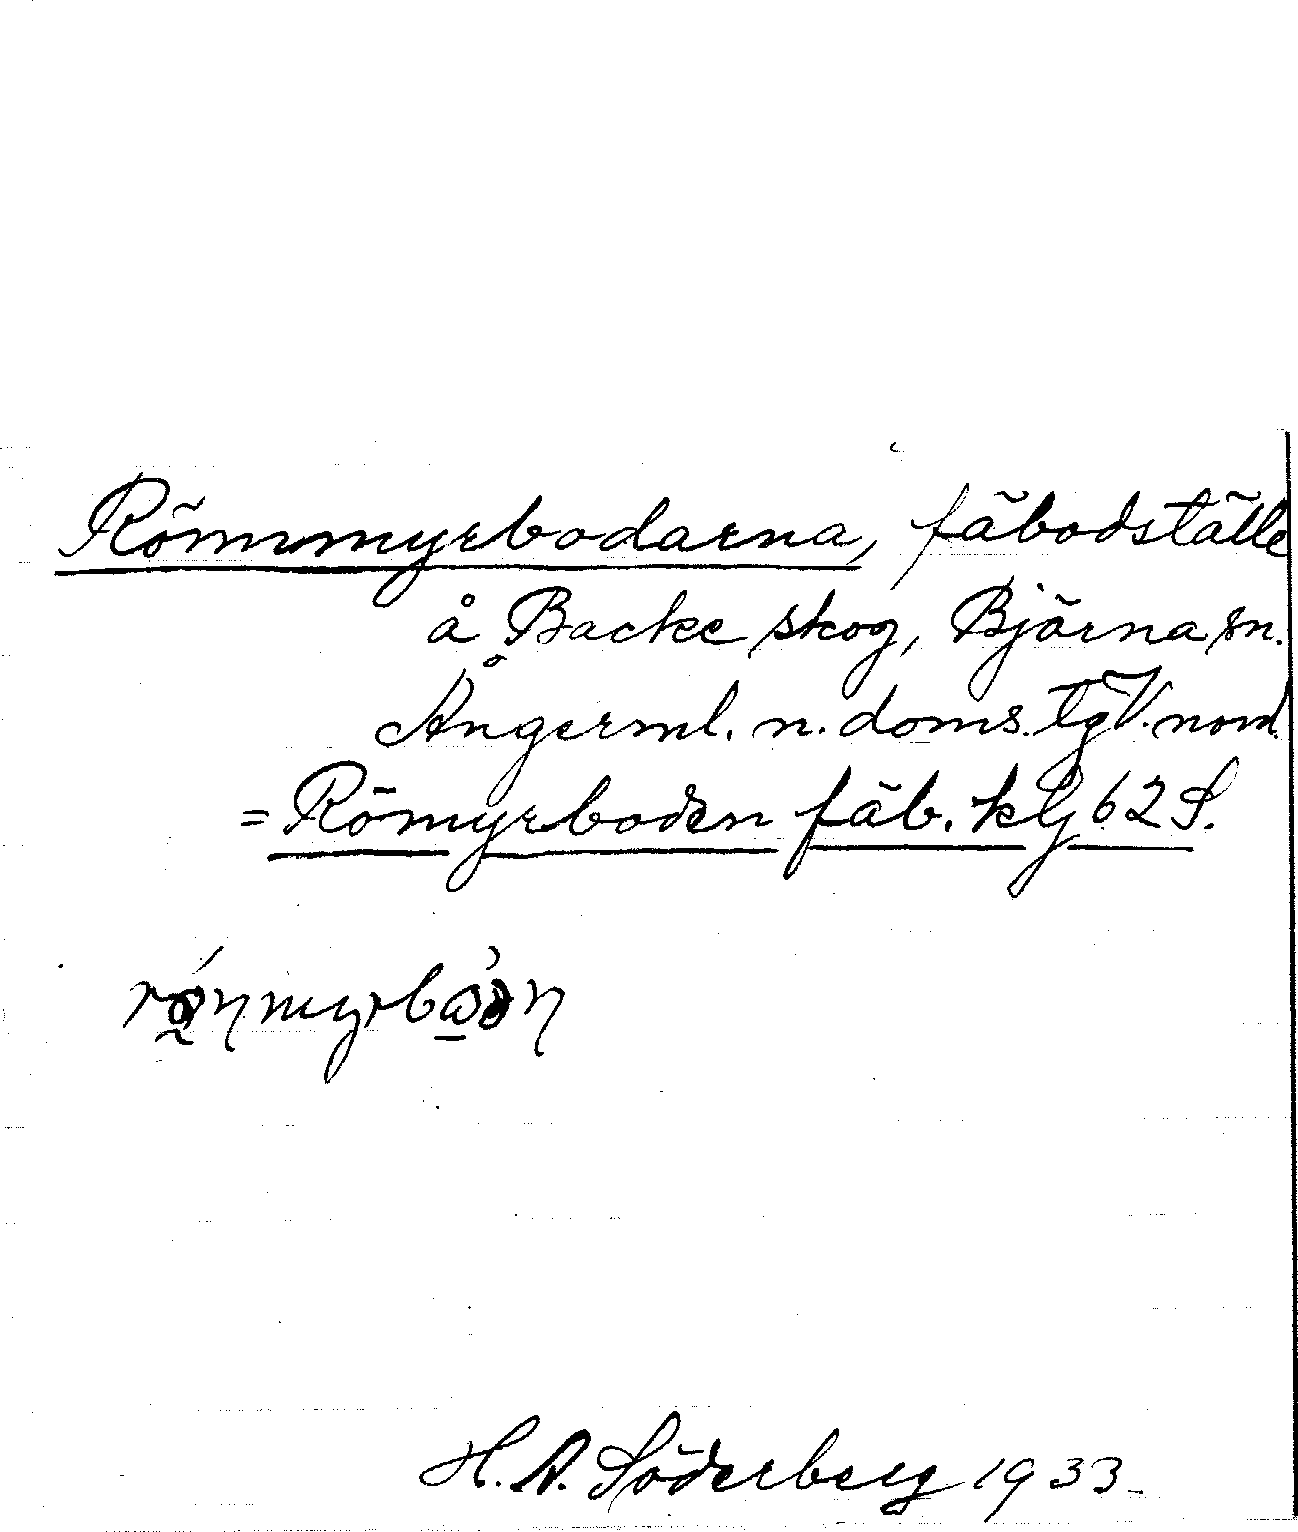 Römmyrbodarna, fäbodställe
å Backe skog, Björna sn.
Ångerml. n. doms. tg V. nord
= Römyrboden fäb. klj 62 S.
H. A. Söderberg 1933